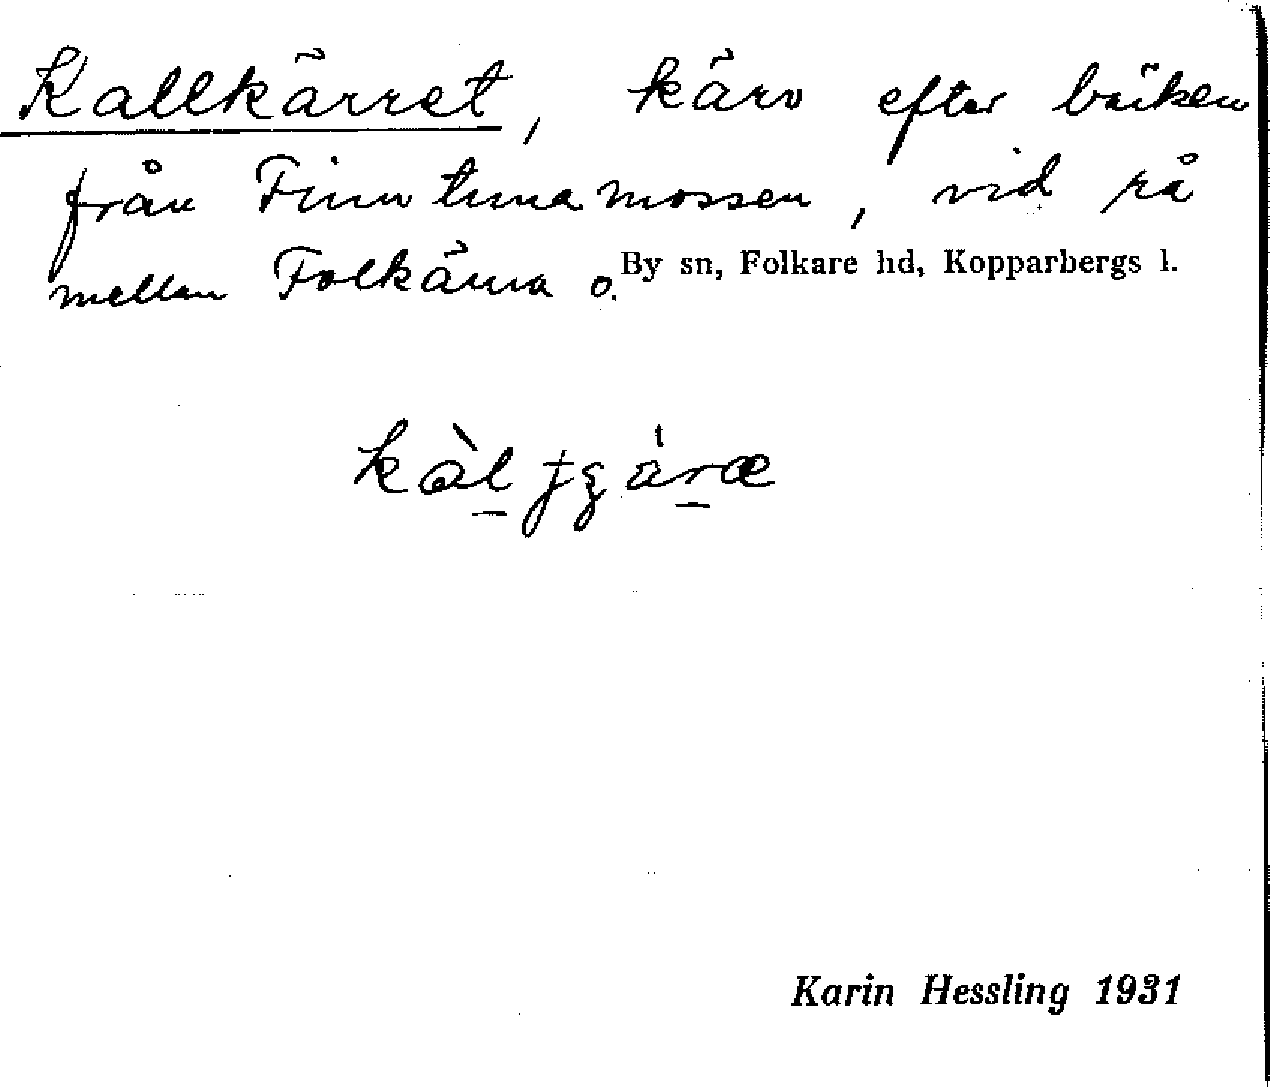 Kallkärret, kärr efter bäcken
från Finntunamossen, vid rå
mellan Folkärna o. By sn, Folkare hd, Kopparbergs l.
Karin Hessling 1931